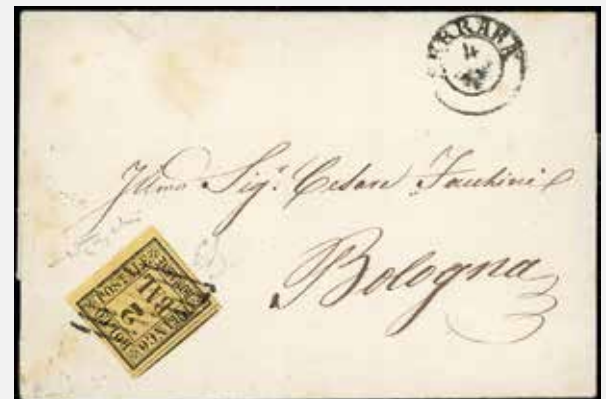 FERRARA
14
Illmo Sigr. Cesare Facchini
Bologna
FRANCO BOLLO
POSTALE
BAI 2